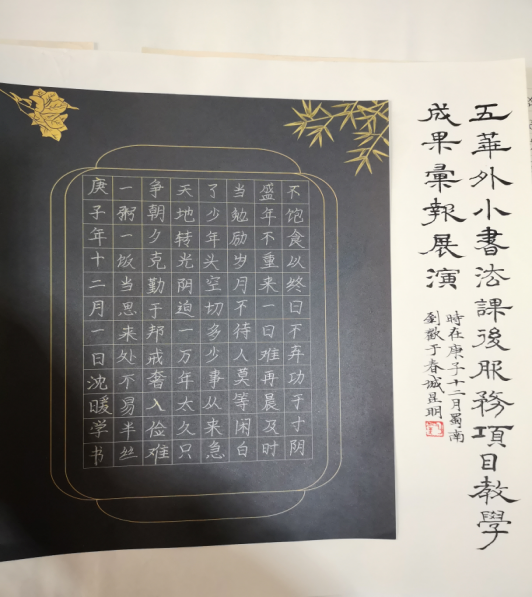 五華外小書法課後服務項目教學
成果彙報展演
時在庚子十二月蜀南
劉歡于春城昆明
不饱食以终日不弃功于寸阴
盛年不重来一日难再晨及时
当勉励岁月不待人莫等闲白
了少年头空切多少事从来急
天地转光阴迫一万年太久只
争朝夕克勤于邦戒奢入俭难
一粥一饭当思来处不易半丝
庚子年十二月一日沈暖学书